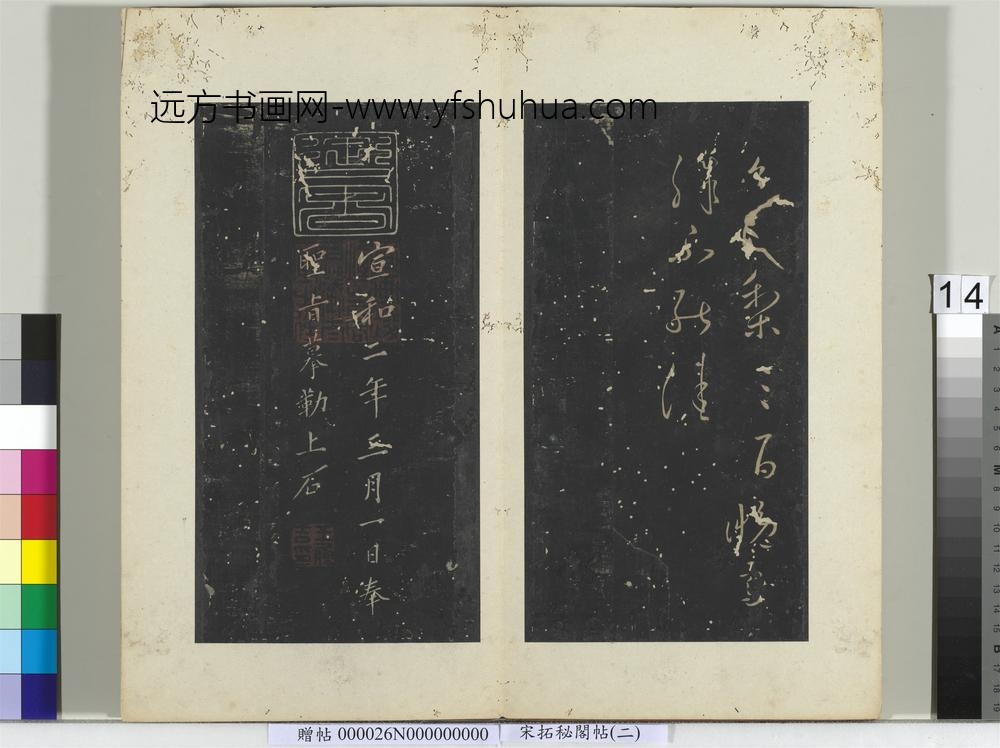 远方书画网-www.yfshuhua.com
今送梨三百晚雪
殊不能佳
御書
宣和二年五月一日奉
聖旨摹勒上石
14
贈帖 000026N000000000
宋拓秘閣帖(二)